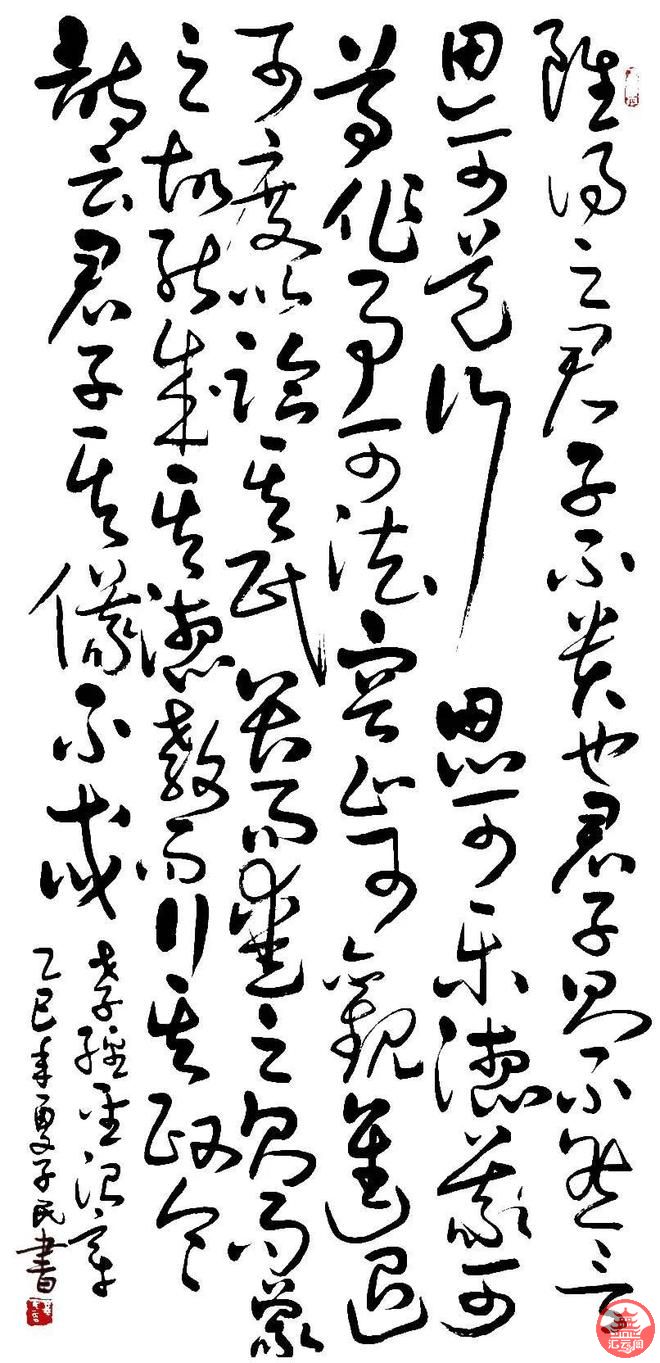 雖得之君子不貴也君子則不然言
思可道行思可樂德義可
尊作事可法容止可觀進退
可度以臨其民畏而愛之則而象
之故能成其德教而行其政令
詩云君子其儀不忒
孝經聖治章
乙巳年夏子民書
汇云阁